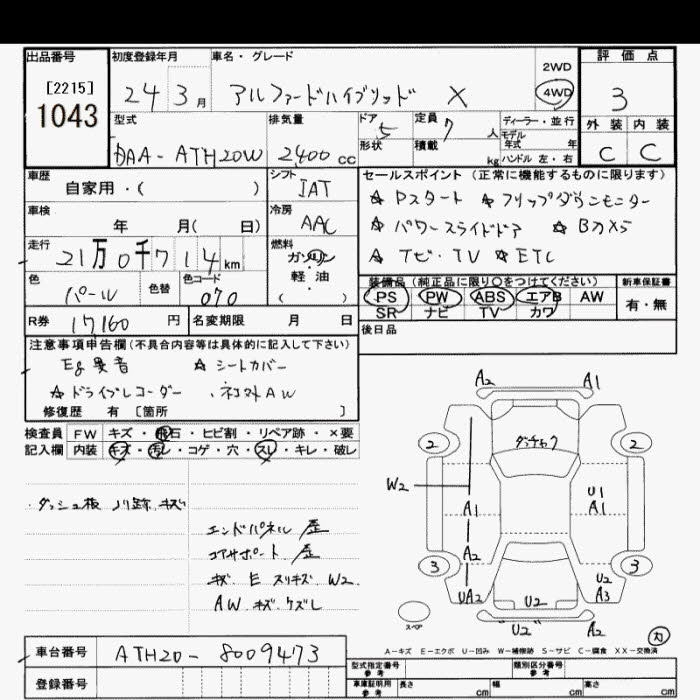 出品番号
[2215]
1043
初度登録年月
24 3月
車名・グレード
アルファードハイブリッド X
2WD
4WD
評価点
3
外装 内装
C C
型式
DAA-ATH20W
排気量
2400cc
ドア
5
形状
定員
7人
積載
kg
ディーラー・並行
モデル
年式 年
ハンドル 左・右
車歴
自家用・( )
シフト
IAT
車検
年 月( 日)
冷房
AAC
走行
21万0千714km
燃料
ガソリン
軽・油
( )
色
パール
色替
色コード
070
R券
17160円
名変期限 月 日
セールスポイント (正常に機能するものに限ります)
☆ Pスタート ☆ フリップダウンモニター
☆ パワースライドドア ☆ Bカメラ
☆ ナビ・TV ☆ ETC
装備品(純正品に限り〇をつけてください)
PS PW ABS エアB AW
SR ナビ TV カワ
新車保証書
有・無
後日品
注意事項申告欄(不具合内容等は具体的に記入して下さい)
Eg異音 ☆ シートカバー
☆ ドライブレコーダー
修復歴 有 [箇所 ]
検査員
記入欄
FW キズ・飛石・ヒビ割・リペア跡・×要
内装 キズ・汚レ・コゲ・穴・スレ・キレ・破レ
・ダッシュ板 ノリ跡 キズ
エンドパネル 歪
コアサポート 歪
キズ E スリキズ W2
AW キズ ケズレ
A2 A1
2 2
W2
U1
A1 A1
A2
3 3
UA2
U2
A3
U2
"U2" A2
スペア
A-キズ E-エクボ U-凹み W-補修跡 S-サビ C-腐食 XX-交換済
車台番号
ATH20-8009473
登録番号
型式指定番号
参考
類別区分番号
参考
車庫証明用
参考
長さ cm
幅 cm
高さ cm